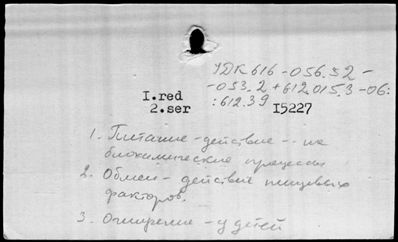 УДК 616-056.52-
-053.2+612.015.3-06:
:612.39
I.red
2.ser
I5227
1. Питание - действие - на
биохимические процессы
2. Обмен - действие пищевых
факторов.
3. Ожирение - у детей